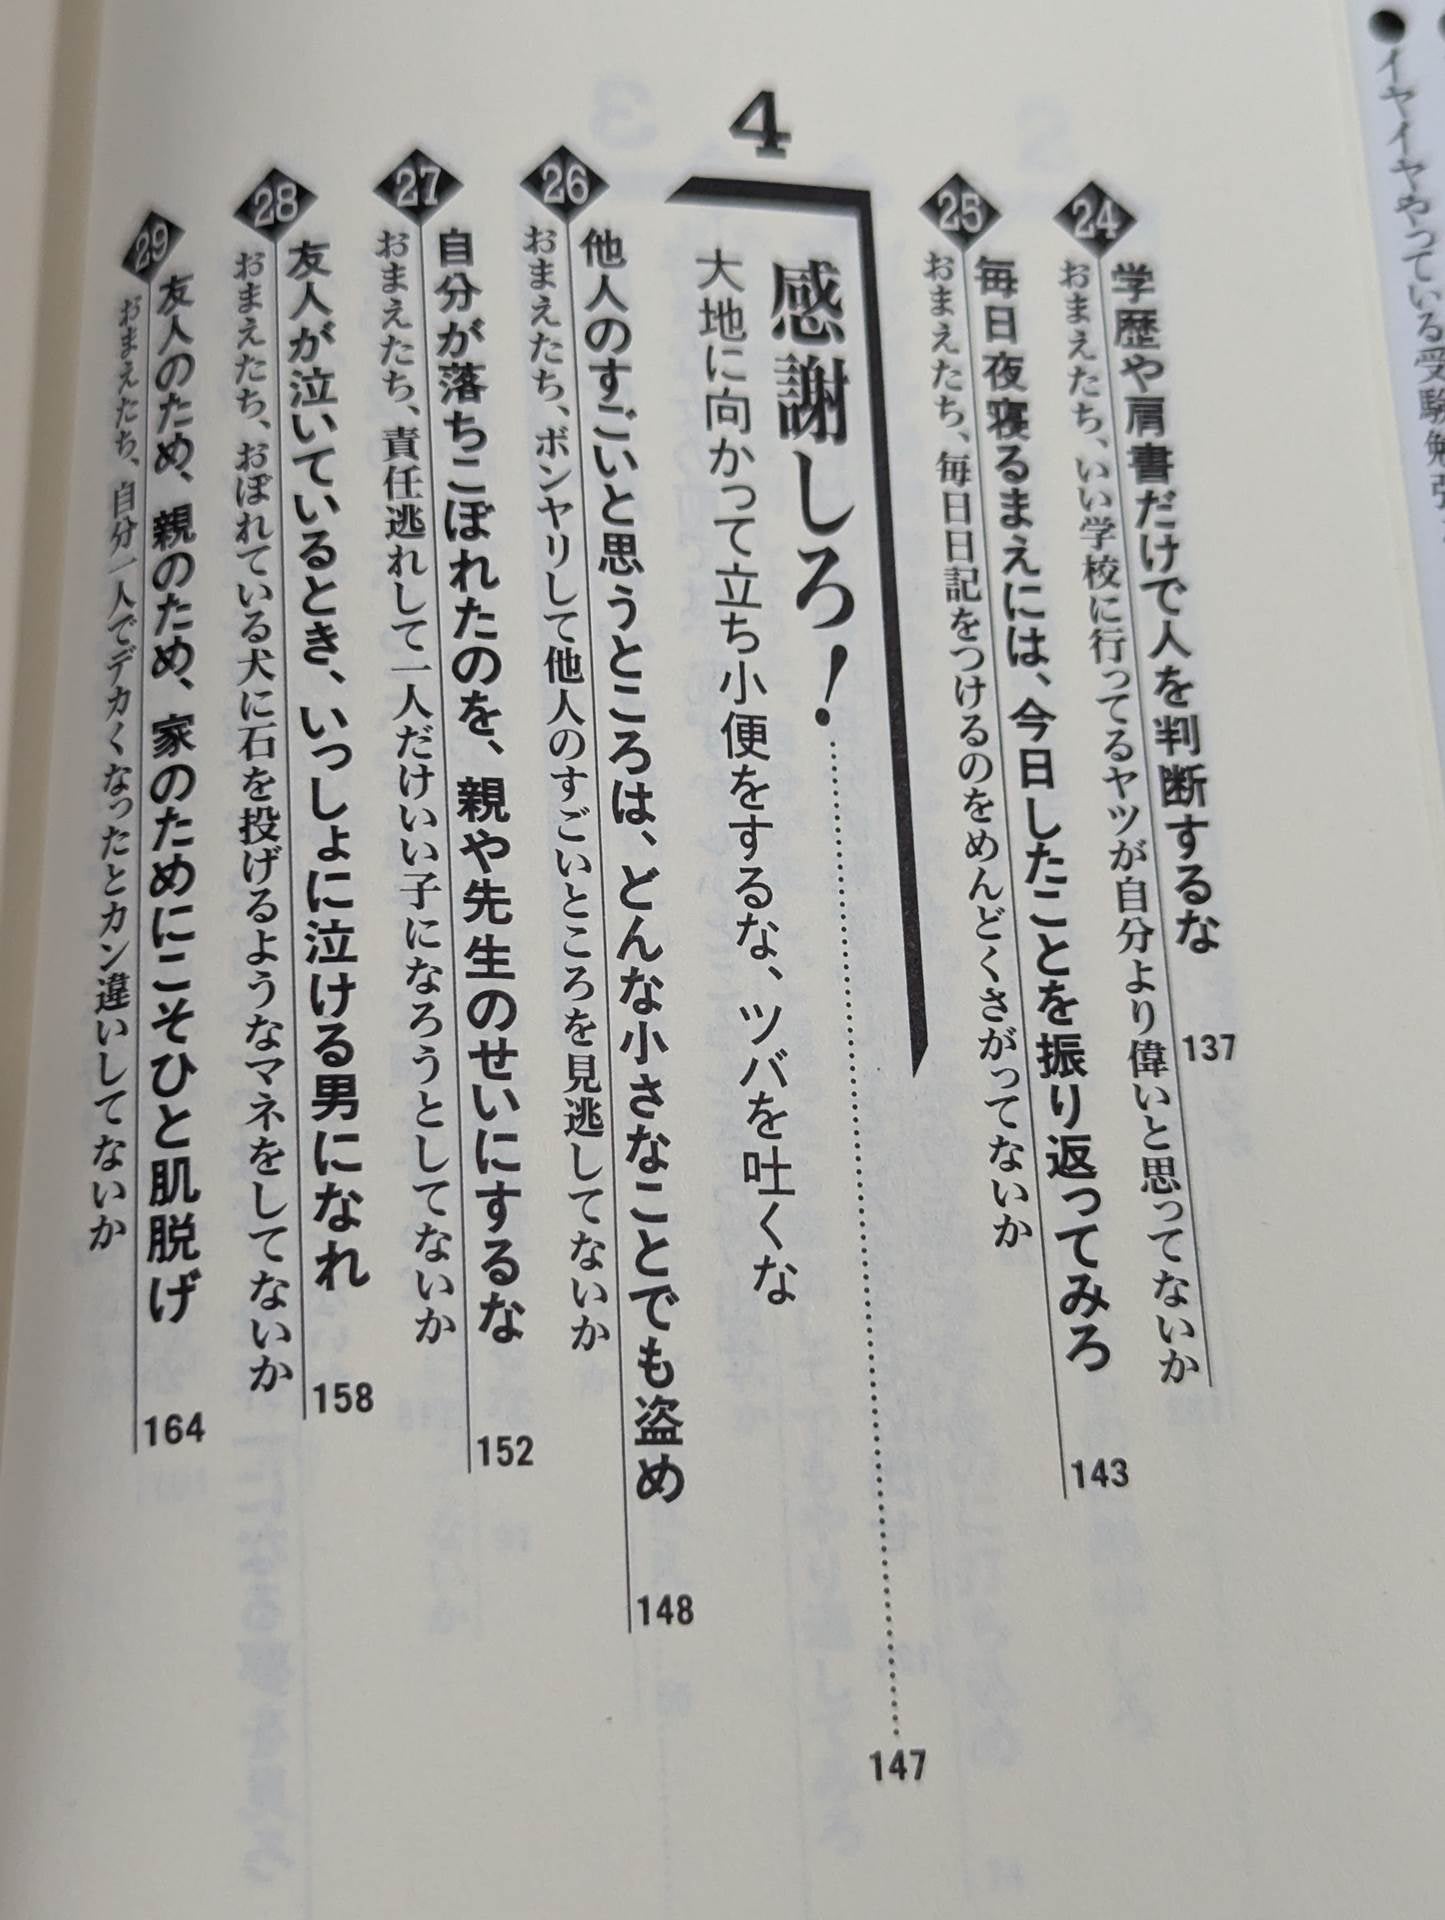 ●イヤイヤやっている受験勉強
24
学歴や肩書だけで人を判断するな 137
おまえたち、いい学校に行ってるヤツが自分より偉いと思ってないか
25
毎日夜寝るまえには、今日したことを振り返ってみろ 143
おまえたち、毎日日記をつけるのをめんどくさがってないか
4
感謝しろ！ 147
大地に向かって立ち小便をするな、ツバを吐くな
26
他人のすごいと思うところは、どんな小さなことでも盗め 148
おまえたち、ボンヤリして他人のすごいところを見逃してないか
27
自分が落ちこぼれたのを、親や先生のせいにするな 152
おまえたち、責任逃れして一人だけいい子になろうとしてないか
28
友人が泣いているとき、いっしょに泣ける男になれ 158
おまえたち、おぼれている犬に石を投げるようなマネをしてないか
29
友人のため、親のため、家のためにこそひと肌脱げ 164
おまえたち、自分一人でデカくなったとカン違いしてないか